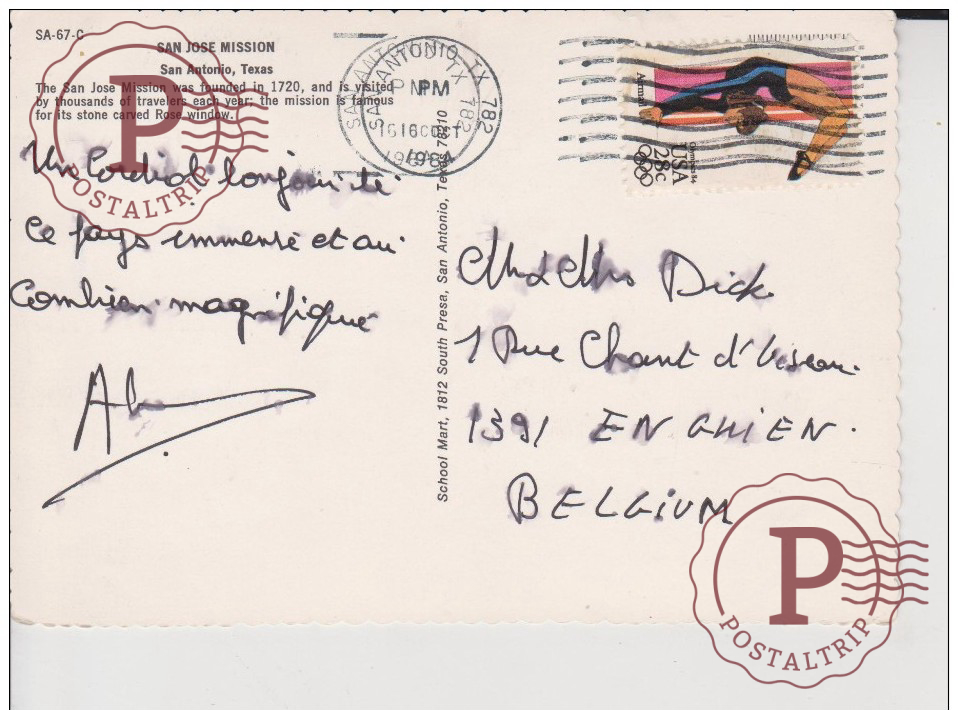 SA-67-C
SAN JOSE MISSION
San Antonio, Texas
The San Jose Mission was founded in 1720, and is visited
by thousands of travelers each year; the mission is famous
for its stone carved Rose window.
Un Cordial bonjour
ce pays immense et
combien magnifique
School Mart, 1812 South Presa, San Antonio, Texas 78210
SAN ANTONIO, TX 782
PM
16 OCT
1984
Airmail
Olympics 84
USA
28c
M & Mrs Dick
1 Rue Chant d'Oiseau
1391 ENGHIEN.
BELGIUM
P
POSTALTRIP
P
POSTALTRIP